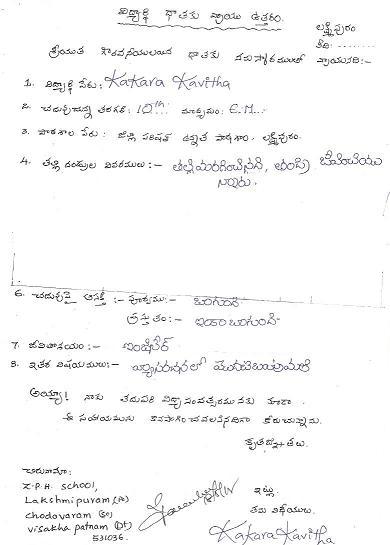 విద్యార్థి దాతకు వ్రాయు ఉత్తరం.
లక్ష్మీపురం
తేది: .........
శ్రీయుత గౌరవనీయులయిన దాతకు నమస్కారములతో వ్రాయునది:-
1. విద్యార్థి పేరు: Kakara Kavitha
2. చదువుచున్న తరగతి: 10th. మాధ్యమం: E.M...
3. పాఠశాల పేరు: జిల్లా పరిషత్ ఉన్నత పాఠశాల, లక్ష్మీపురం.
4. తల్లి దండ్రుల వివరములు:- తల్లి మరణించినది, తండ్రి
6. చదువుపై ఆసక్తి :- పూర్వము:- బాగుంది
ప్రస్తుతం:- ఇంకా బాగుంది
7. జీవితాశయం:- ఇంజినీర్
8. ఇతర విషయములు:- వ్యాసరచనలో మొదటి బహుమతి
అయ్యా! నాకు తదుపరి విద్యా సంవత్సరమునకు కూడా
ఈ సహాయమును కొనసాగించవలసినదిగా కోరుచున్నాను.
కృతజ్ఞతలు.
చిరునామా:
Z.P.H. School,
Lakshmipuram (Po)
Chodavaram (So)
Visakha patnam (Dt)
531036.
ఇట్లు
తమ విధేయులు
Kakara Kavitha